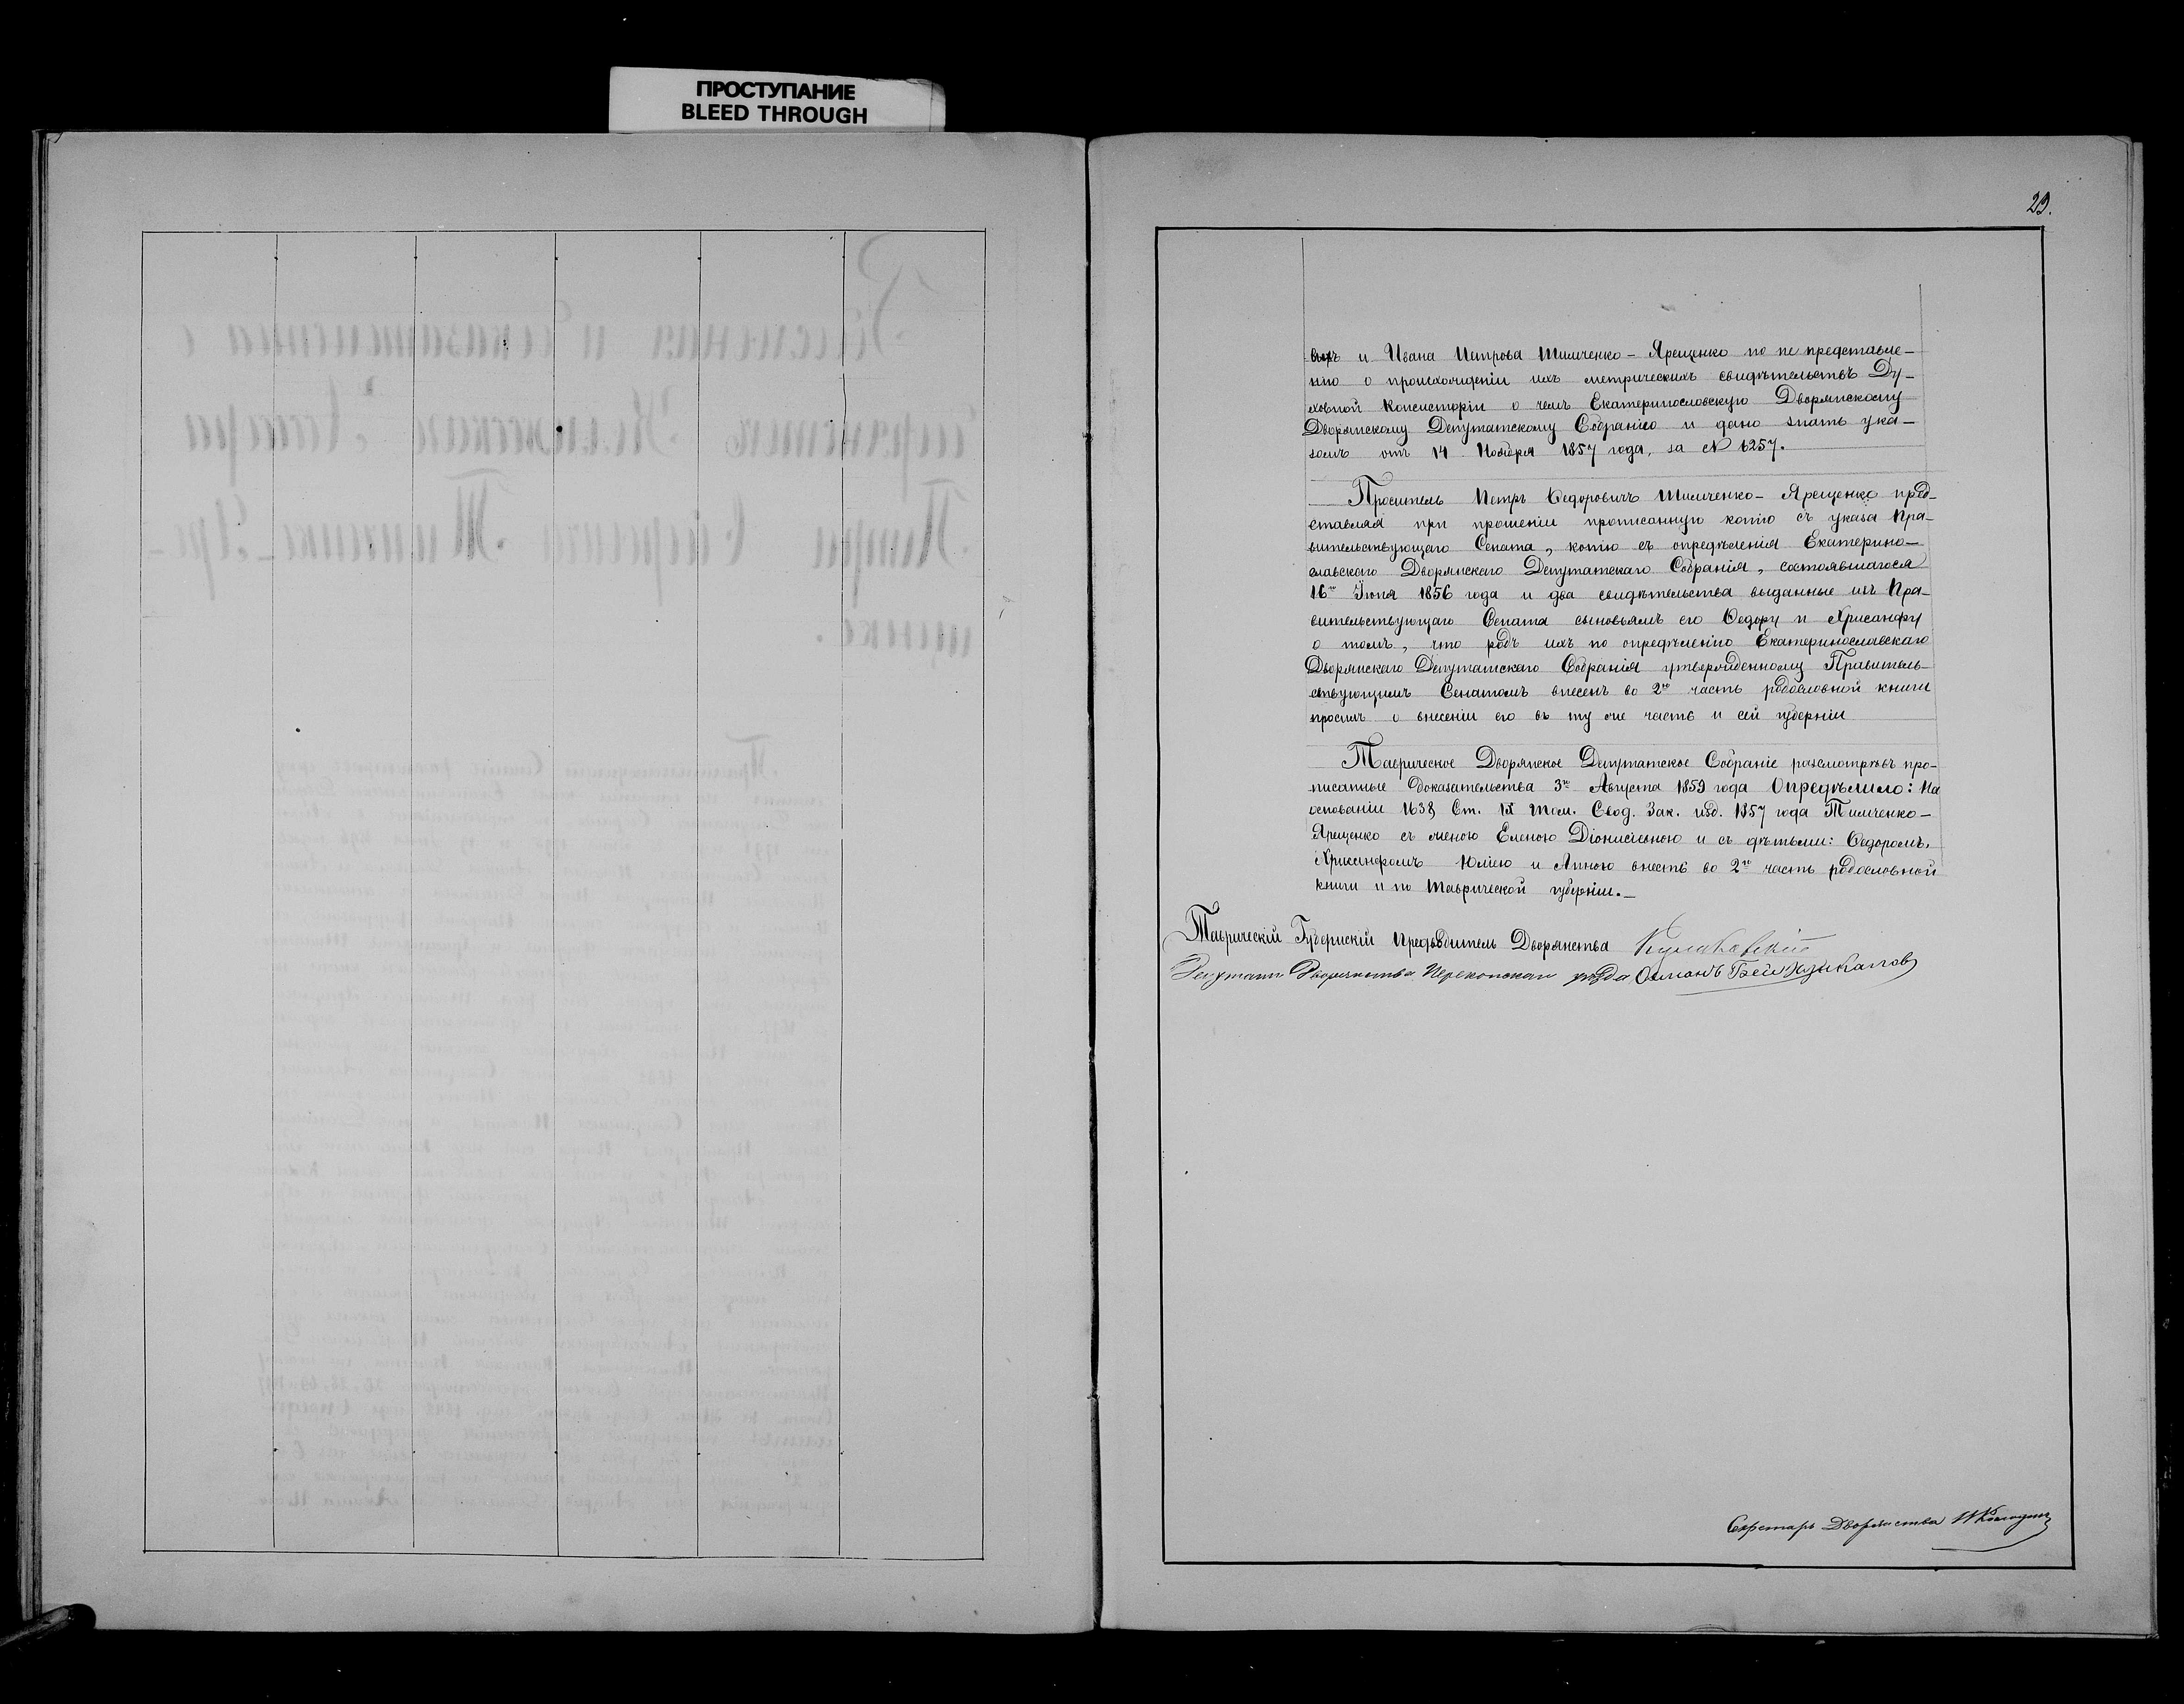 ПРОСТУПАНИЕ
BLEED THROUGH
29.
выхъ и Ивана Петрова Тимченко-Ярещенко по не представле-
нію о происхожденіи ихъ метрическихъ свидѣтельствъ Ду-
ховной Консисторіи о чемъ Екатеринословскую Дворянскому
Дворянскому Депутатскому Собранію и дано знать ука-
зомъ отъ 14 Ноября 1857 года, за № 6257.
Проситель Петръ Ѳедоровичъ Тимченко-Ярещенко пред-
ставляя при прошеніи прописанную копію съ указа Пра-
вительствующаго Сената, копію съ опредѣленія Екатерино-
славскаго Дворянскаго Депутатскаго Собранія, состоявшагося
16го Іюня 1856 года и два свидѣтельства выданные изъ Пра-
вительствующаго Сената сыновьямъ его Ѳедору и Хрисанфу
о томъ, что родъ ихъ по опредѣленію Екатеринославскаго
Дворянскаго Депутатскаго Собранія утвержденному Правитель-
ствующимъ Сенатомъ внесенъ во 2ю часть родословной книги
просилъ о внесеніи его въ ту же часть и сей губерніи
Таврическое Дворянское Депутатское Собраніе разсмотрѣвъ про-
писанные доказательства 3го Августа 1859 года Опредѣлило: На
основаніи 1638 Ст. IX Том. Свод. Зак. изд. 1857 года Тимченко-
Ярещенко съ женою Еленою Діонисіевною и съ дѣтьми: Ѳедоромъ,
Хрисанфомъ Юліею и Анною внесть во 2ю часть родословной
книги и по Таврической губерніи.
Таврическій Губернскій Предводитель Дворянства
Депутатъ Дворянства Перекопскаго уѣзда Османъ Бей
Секретарь Дворянства